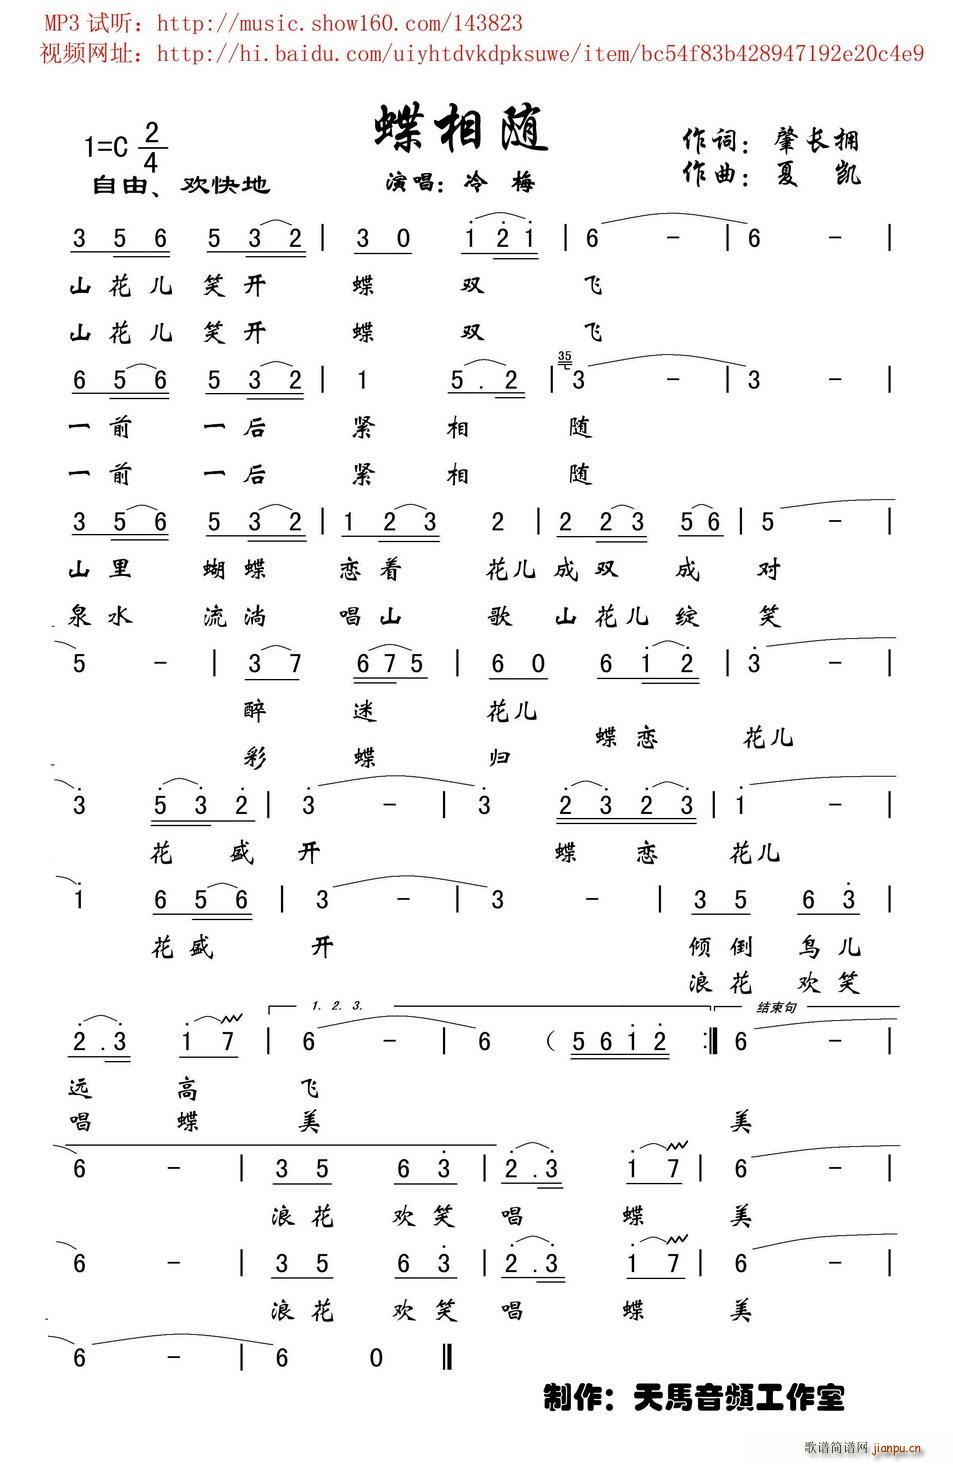 MP3 试听：http://music.show160.com/143823
视频网址：http://hi.baidu.com/uiyhtdvkdpksuwe/item/bc54f83b428947192e20c4e9
蝶相随
1=C 2/4
作词：肇长拥
自由、欢快地
演唱：冷 梅
作曲：夏 凯
3 5 6 5 3 2 | 3 0 1 2 1 | 6 - | 6 - |
山 花 儿 笑 开 蝶 双 飞
山 花 儿 笑 开 蝶 双 飞
6 5 6 5 3 2 | 1 5 . 2 | 35 3 - | 3 - |
一 前 一 后 紧 相 随
一 前 一 后 紧 相 随
3 5 6 5 3 2 | 1 2 3 2 | 2 2 3 5 6 | 5 - |
山 里 蝴 蝶 恋 着 花儿 成 双 成 对
泉 水 流 淌 唱 山 歌 山 花儿 绽 笑
5 - | 3 7 6 7 5 | 6 0 6 1 2 | 3 - |
醉 迷 花儿
蝶 恋 花儿
彩 蝶 归
3 5 3 2 | 3 - | 3 2 3 2 3 | 1 - |
花 盛 开 蝶 恋 花儿
1 6 5 6 | 3 - | 3 - | 3 5 6 3 |
花 盛 开 倾 倒 鸟 儿
浪 花 欢 笑
1. 2. 3. 结束句
2 . 3 1 7 | 6 - | 6 ( 5 6 1 2 :‖ 6 - |
远 高 飞
唱 蝶 美 美
6 - | 3 5 6 3 | 2 . 3 1 7 | 6 - |
浪 花 欢 笑 唱 蝶 美
6 - | 3 5 6 3 | 2 . 3 1 7 | 6 - |
浪 花 欢 笑 唱 蝶 美
6 - | 6 0 ‖
制作：天馬音頻工作室
歌谱简谱网 jianpu.cn